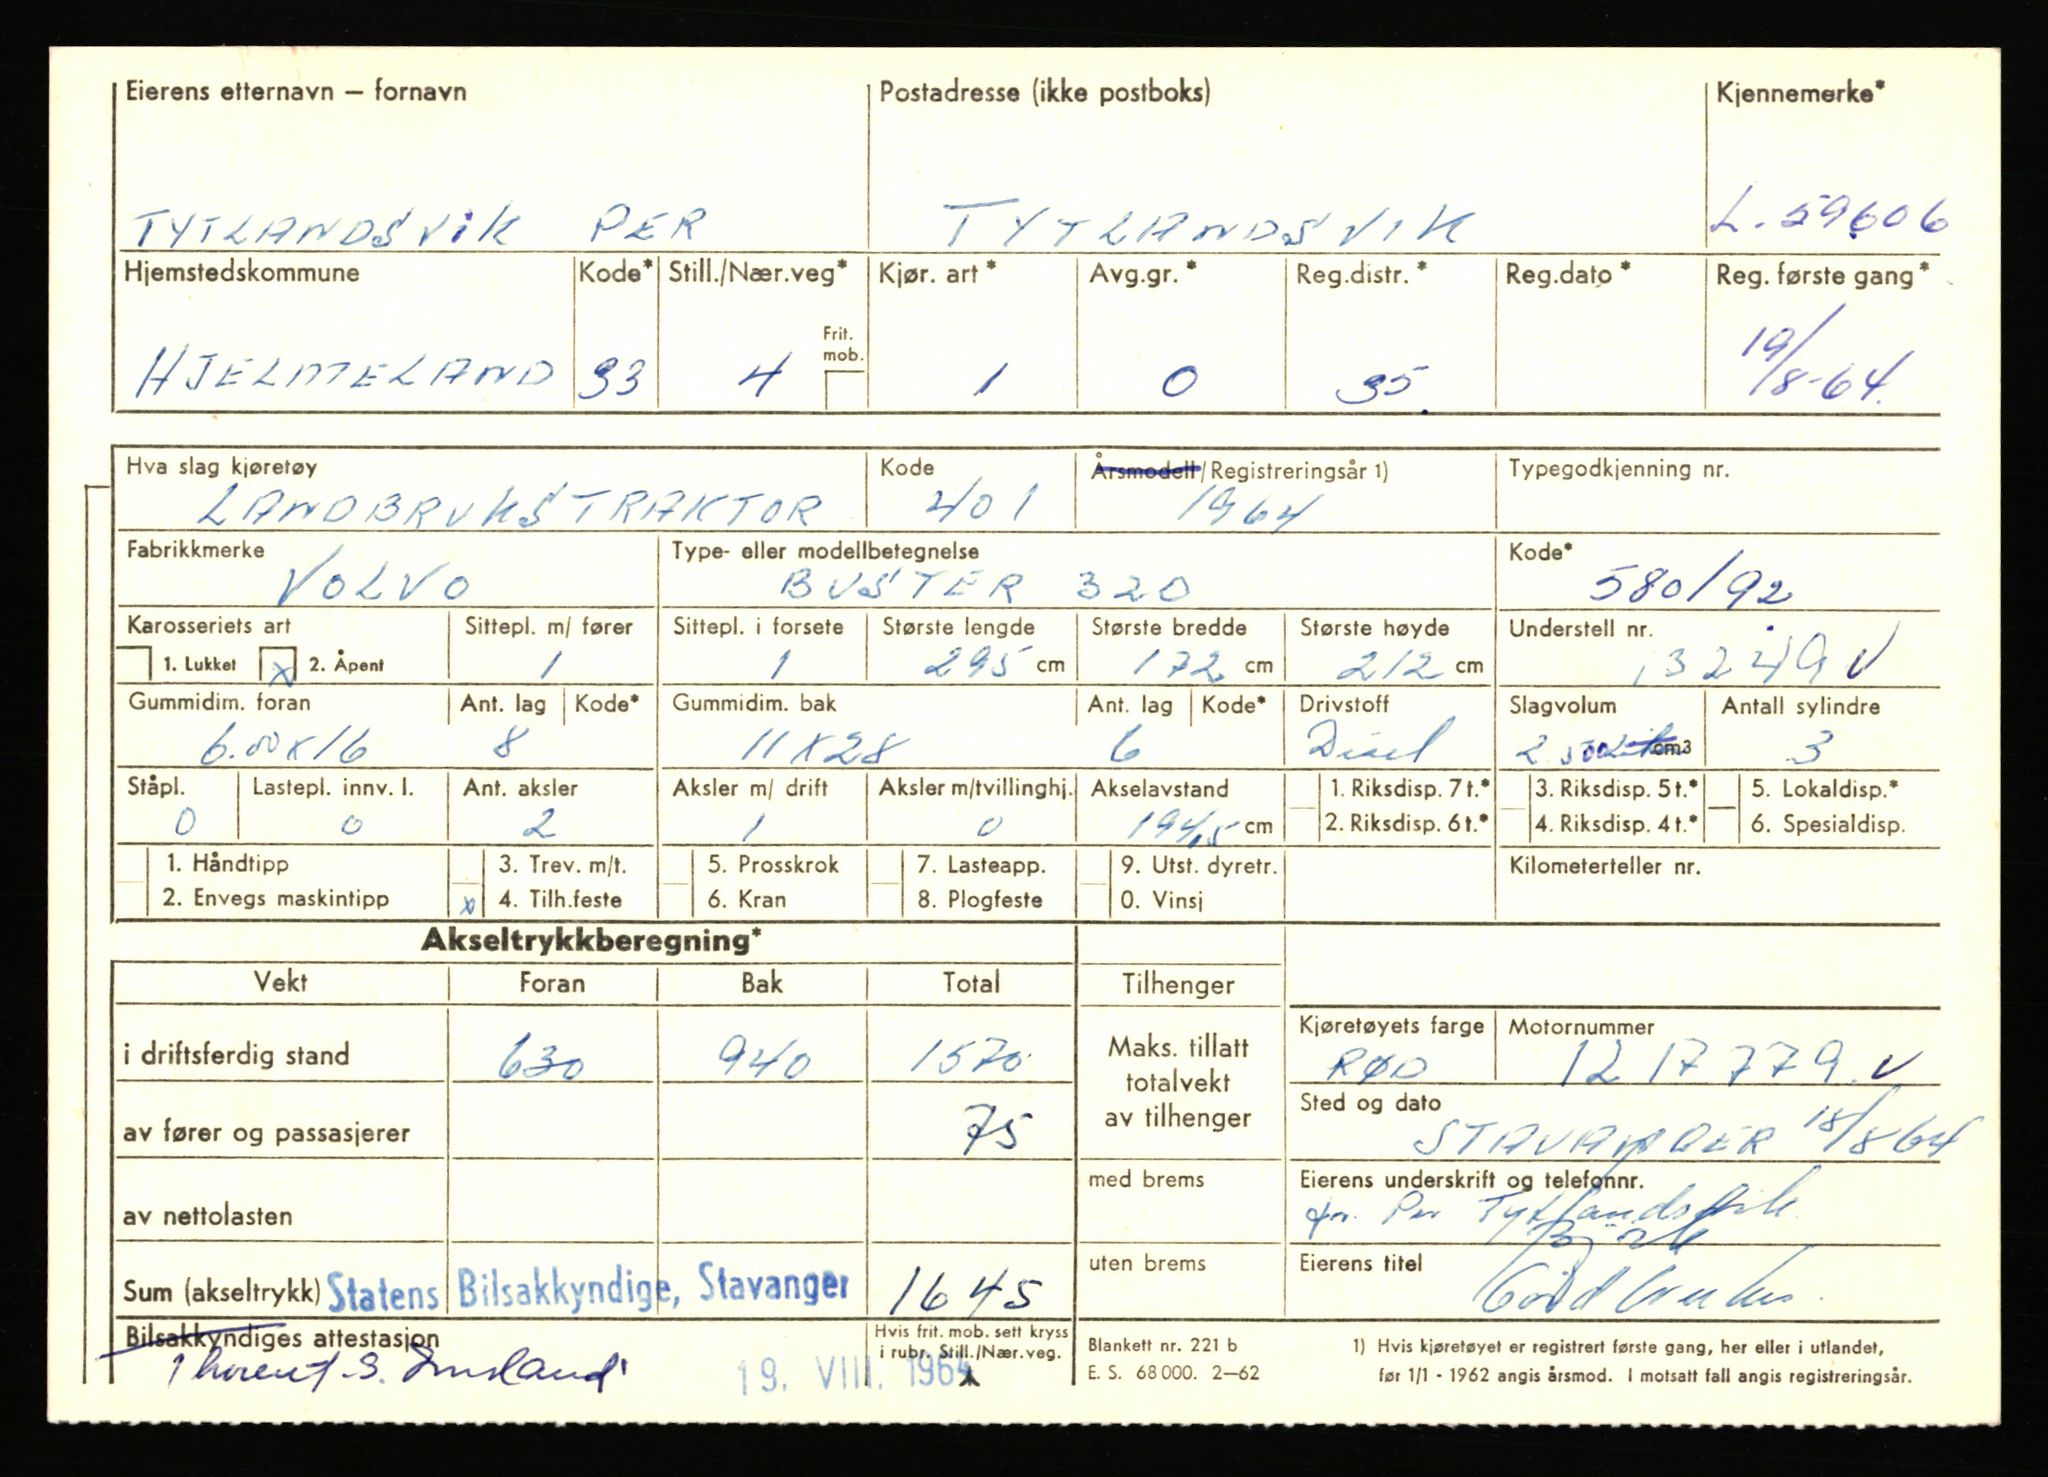 Eierens etternavn – fornavn Postadresse (ikke postboks) Kjennemerke*
TYTLANDSVIK PER TYTLANDSVIK L. 59606
Hjemstedskommune Kode* Still./Nær.veg* Kjør. art* Avg.gr.* Reg.distr.* Reg.dato* Reg. første gang*
Frit. mob.
HJELMELAND 33 4 1 0 35. 19/8-64.
Hva slag kjøretøy Kode Årsmodell/Registreringsår 1) Typegodkjenning nr.
LANDBRUKSTRAKTOR 401 1964
Fabrikkmerke Type- eller modellbetegnelse Kode*
VOLVO BUSTER 320 580/92
Karosseriets art Sittepl. m/ fører Sittepl. i forsete Største lengde Største bredde Største høyde Understell nr.
1. Lukket x 2. Åpent 1 1 295 cm 172 cm 212 cm 13249 v
Gummidim. foran Ant. lag Kode* Gummidim. bak Ant. lag Kode* Drivstoff Slagvolum Antall sylindre
6.00 x 16 8 11 x 28 6 Disel cm3 3
Ståpl. Lastepl. innv. l. Ant. aksler Aksler m/ drift Aksler m/tvillinghj. Akselavstand 1. Riksdisp. 7 t.* 3. Riksdisp. 5 t.* 5. Lokaldisp.*
0 0 2 1 0 194,5 cm 2. Riksdisp. 6 t.* 4. Riksdisp. 4 t.* 6. Spesialdisp.
1. Håndtipp 3. Trev. m/t. 5. Prosskrok 7. Lasteapp. 9. Utst. dyretr. Kilometerteller nr.
2. Envegs maskintipp x 4. Tilh.feste 6. Kran 8. Plogfeste 0. Vinsj
Akseltrykkberegning*
Vekt Foran Bak Total Tilhenger
Kjøretøyets farge Motornummer
i driftsferdig stand 630 940 1570 Maks. tillatt totalvekt av tilhenger RØD 1217779. v
Sted og dato
av fører og passasjerer 75 STAVANGER 18/8 64
med brems Eierens underskrift og telefonnr.
av nettolasten Per Tytlandsvik
uten brems Eierens titel
Sum (akseltrykk) Statens Bilsakkyndige, Stavanger 1645 Gårdbruker
Bilsakkyndiges attestasjon Hvis frit. mob. sett kryss i rubr. Still./Nær.veg. Blankett nr. 221 b 1) Hvis kjøretøyet er registrert første gang, her eller i utlandet,
19. VIII. 1964 E. S. 68 000. 2–62 før 1/1 - 1962 angis årsmod. I motsatt fall angis registreringsår.